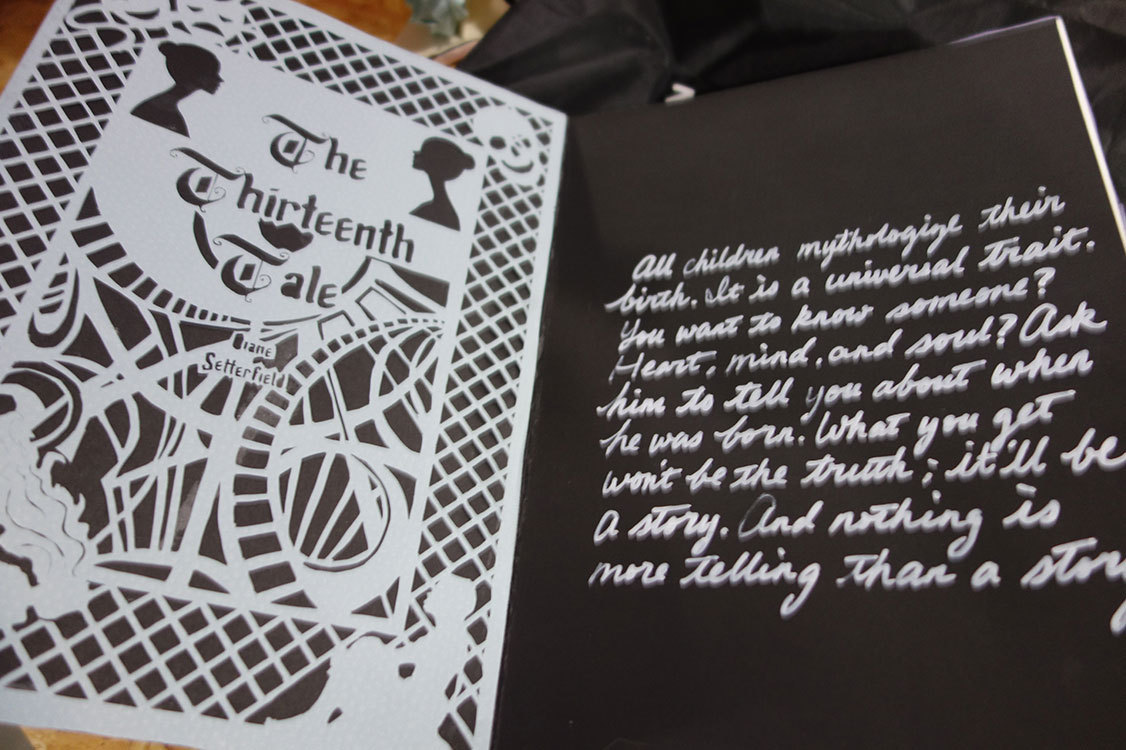 The
Thirteenth
Tale
Diane
Setterfield
All children mythologize their
birth. It is a universal trait.
You want to know someone?
Heart, mind, and soul? Ask
him to tell you about when
he was born. What you get
won't be the truth; it'll be
a story. And nothing is
more telling than a story